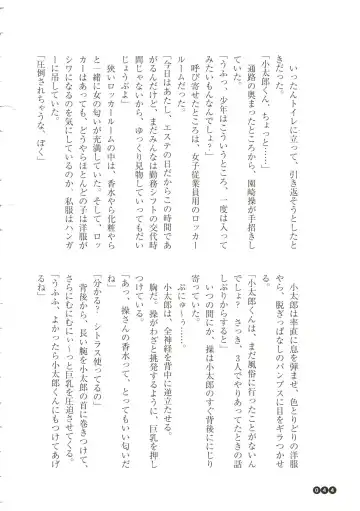 いったんトイレに立って、引き返そうとしたと
きだった。
「小太郎くん、ちょっと……」
通路の奥まったところから、園崎操が手招きし
ていた。
「うふっ、少年はこういうところ、一度は入って
みたいもんなんでしょ？」
呼び寄せたところは、女子従業員用のロッカー
ルームだった。
「今日はあたし、エステの日だからこの時間であ
がるんだけど、まだみんなは勤務シフトの交代時
間じゃないから、ゆっくり見物していってもだい
じょうぶよ」
狭いロッカールームの中は、香水や化粧やら
と一緒に女の匂いが充満していた。そして、ロッ
カーはあっても、どうやらほとんどの子は洋服が
シワになるのを気にしているのか、私服はハンガ
ーに吊していた。
「圧倒されちゃうな、ぼく」
小太郎は率直に息を弾ませ、色とりどりの洋服
やら、脱ぎっぱなしのパンプスに目をギラつかせ
た。
「小太郎くんは、まだ風俗に行ったことがないん
でしょ。さっき、3人でやりあってたときの話
しぶりからすると」
いつの間にか、操は小太郎のすぐ背後ににじり
寄っていた。
ぷにゅーぅ……。
小太郎は、全神経を背中に逆立たせる。
胸だ。操がわざと挑発するように、巨乳を押し
つけている。
「あっ、操さんの香水って、とってもいい匂いだ
ね」
「分かるぅ、シトラス使ってるの」
背後から、長い腕を小太郎の首に巻きつけて、
さらにむにむにぃーっと巨乳を圧迫させてくる。
「うふふ、よかったら小太郎くんにもつけてあげ
るね」
044